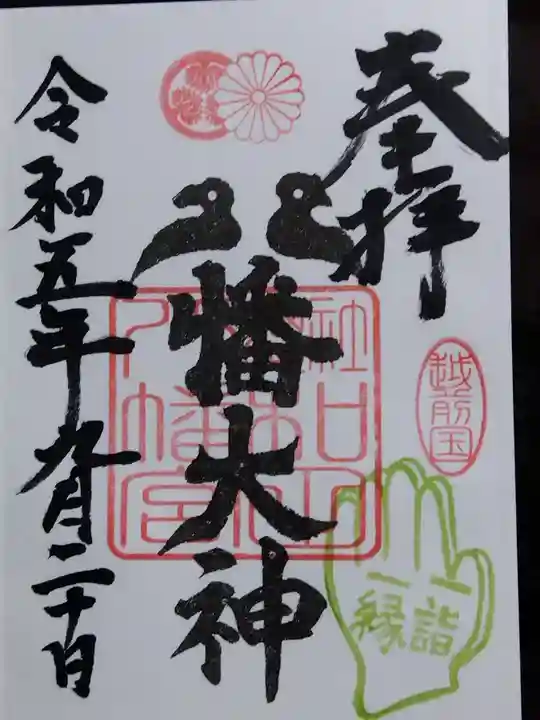 奉拝
越前国
八幡大神
一縁一詣
令和五年九月二十日